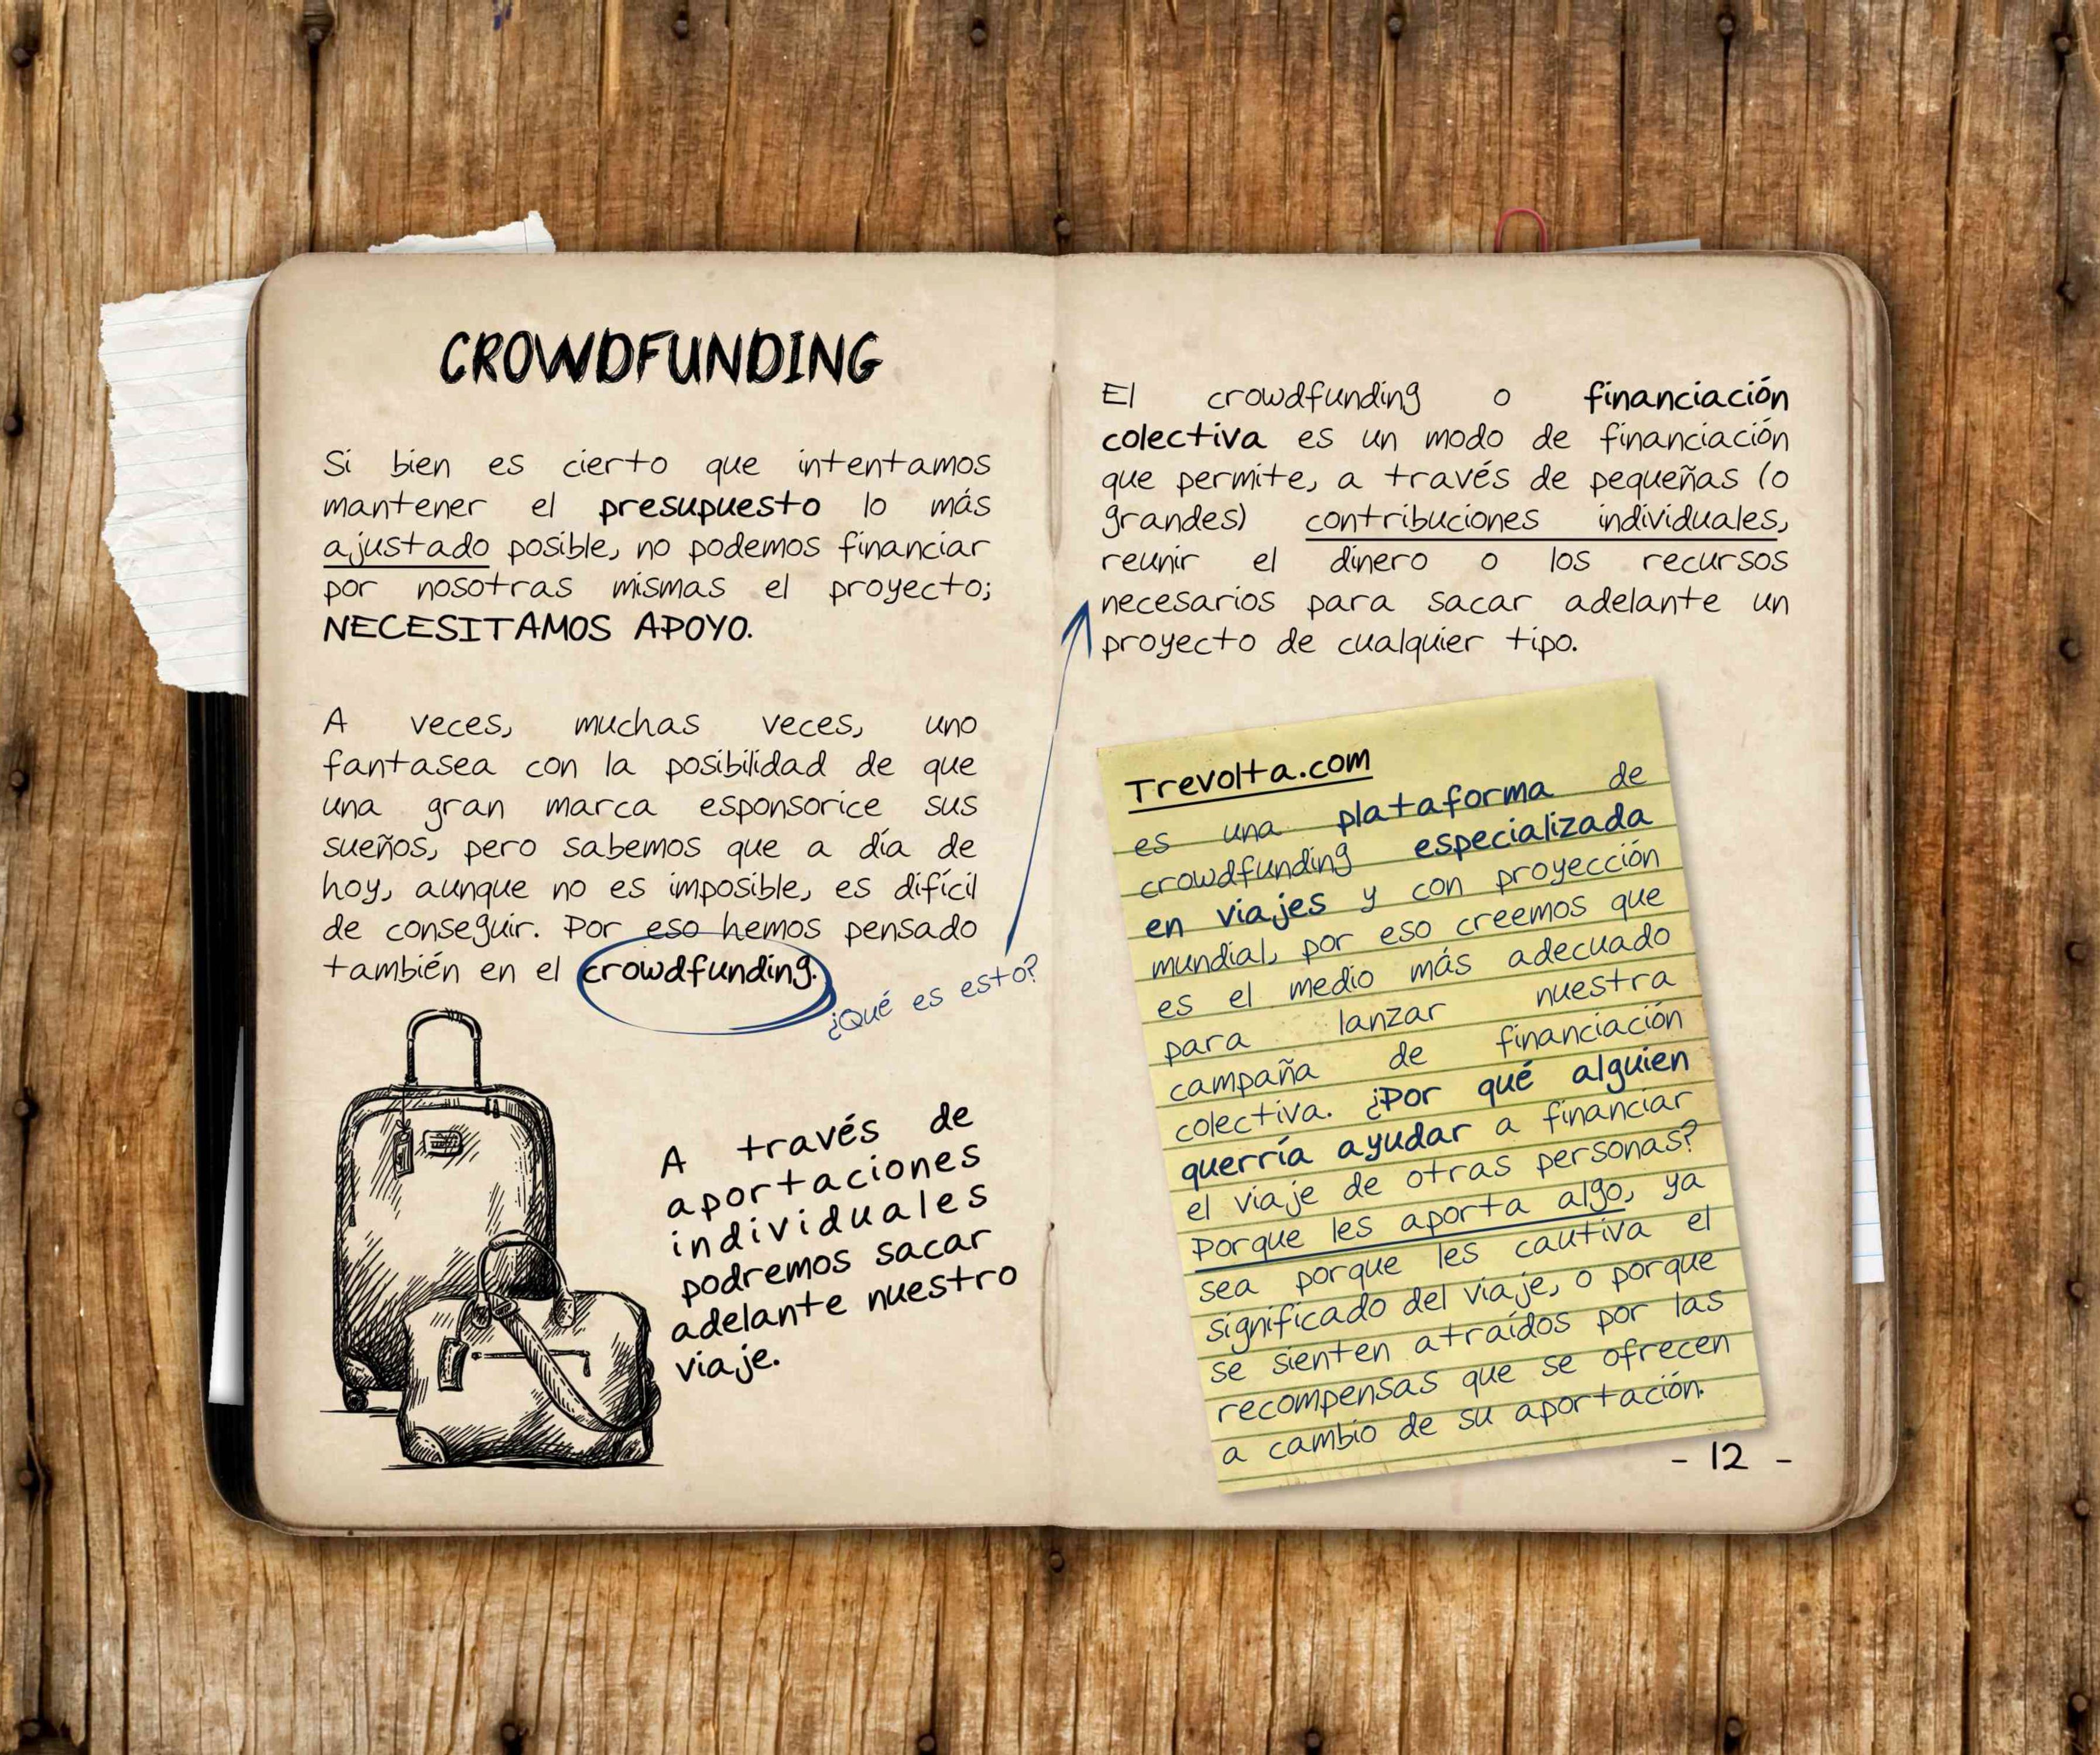 CROWDFUNDING
Si bien es cierto que intentamos
mantener el presupuesto lo más
ajustado posible, no podemos financiar
por nosotras mismas el proyecto;
NECESITAMOS APOYO.
A veces, muchas veces, uno
fantasea con la posibilidad de que
una gran marca esponsorice sus
sueños, pero sabemos que a día de
hoy, aunque no es imposible, es difícil
de conseguir. Por eso hemos pensado
también en el crowdfunding.
¿Qué es esto?
A través de
aportaciones
individuales
podremos sacar
adelante nuestro
viaje.
El crowdfunding o financiación
colectiva es un modo de financiación
que permite, a través de pequeñas (o
grandes) contribuciones individuales,
reunir el dinero o los recursos
necesarios para sacar adelante un
proyecto de cualquier tipo.
Trevolta.com
es una plataforma de
crowdfunding especializada
en viajes y con proyección
mundial, por eso creemos que
es el medio más adecuado
para lanzar nuestra
campaña de financiación
colectiva. ¿Por qué alguien
querría ayudar a financiar
el viaje de otras personas?
Porque les aporta algo, ya
sea porque les cautiva el
significado del viaje, o porque
se sienten atraídos por las
recompensas que se ofrecen
a cambio de su aportación.
- 12 -